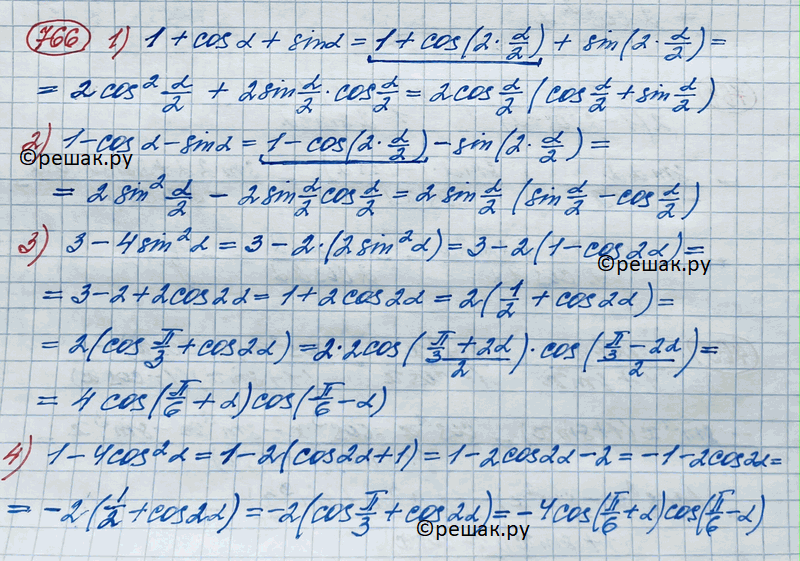 766 1) 1 + cos α + sin α = 1 + cos(2 · α/2) + sin(2 · α/2) =
= 2cos² α/2 + 2sin α/2 · cos α/2 = 2cos α/2 (cos α/2 + sin α/2)
2) 1 - cos α - sin α = 1 - cos(2 · α/2) - sin(2 · α/2) =
©решак.ру
= 2 sin² α/2 - 2 sin α/2 cos α/2 = 2 sin α/2 (sin α/2 - cos α/2)
3) 3 - 4sin² α = 3 - 2 · (2sin² α) = 3 - 2(1 - cos 2α) =
©решак.ру
= 3 - 2 + 2cos 2α = 1 + 2cos 2α = 2(1/2 + cos 2α) =
= 2(cos π/3 + cos 2α) = 2 · 2cos((π/3 + 2α)/2) · cos((π/3 - 2α)/2) =
= 4 cos(π/6 + α) cos(π/6 - α)
4) 1 - 4cos² α = 1 - 2(cos 2α + 1) = 1 - 2cos 2α - 2 = -1 - 2cos 2α =
= -2 · (1/2 + cos 2α) = -2(cos π/3 + cos 2α) = -4cos(π/6 + α) cos(π/6 - α)
©решак.ру